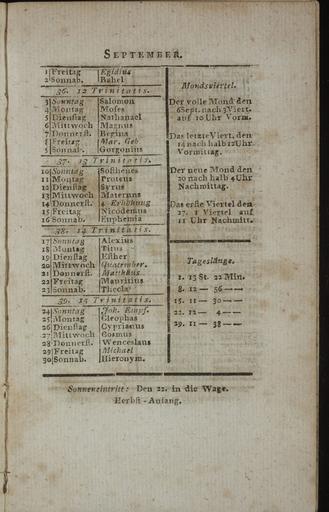 SEPTEMBER.
1 Freitag Egidius
2 Sonnab. Rahel
36. 12 Trinitatis.
3 Sonntag Salomon
4 Montag Moses
5 Dienstag Nathanael
6 Mittwoch Magnus
7 Donnerst. Regina
8 Freitag Mar. Geb
9 Sonnab. Gorgonius
37. 13 Trinitatis.
10 Sonntag Sosthenes
11 Montag Proteus
12 Dienstag Syrus
13 Mittwoch Maternus
14 Donnerst. ✝ Erhöhung
15 Freitag Nicodemus
16 Sonnab. Euphemia
38. 14 Trinitatis.
17 Sonntag Alexius
18 Montag Titus
19 Dienstag Esther
20 Mittwoch Quatember.
21 Donnerst. Matthäus
22 Freitag Mauritius
23 Sonnab. Thecla
39. 15 Trinitatis.
24 Sonntag Joh. Empf.
25 Montag Cleophas
26 Dienstag Cyprianus
27 Mittwoch Cosmus
28 Donnerst. Wenceslaus
29 Freitag Michael
30 Sonnab. Hieronym.
Mondsviertel.
Der volle Mond den
6 Sept. nach 3 Viert.
auf 10 Uhr Vorm.
Das letzte Viert. den
14 nach halb 12 Uhr
Vormittag.
Der neue Mond den
20 nach halb 4 Uhr
Nachmittag.
Das erste Viertel den
27. 1 Viertel auf
11 Uhr Nachmitt.
Tageslänge.
1. 13 St. 22 Min.
8. 12 — 56 — —
15. 11 — 30 — —
22. 12 — 4 — —
29. 11 — 38 — —
Sonneneintritt: Den 22. in die Wage.
Herbst - Anfang.